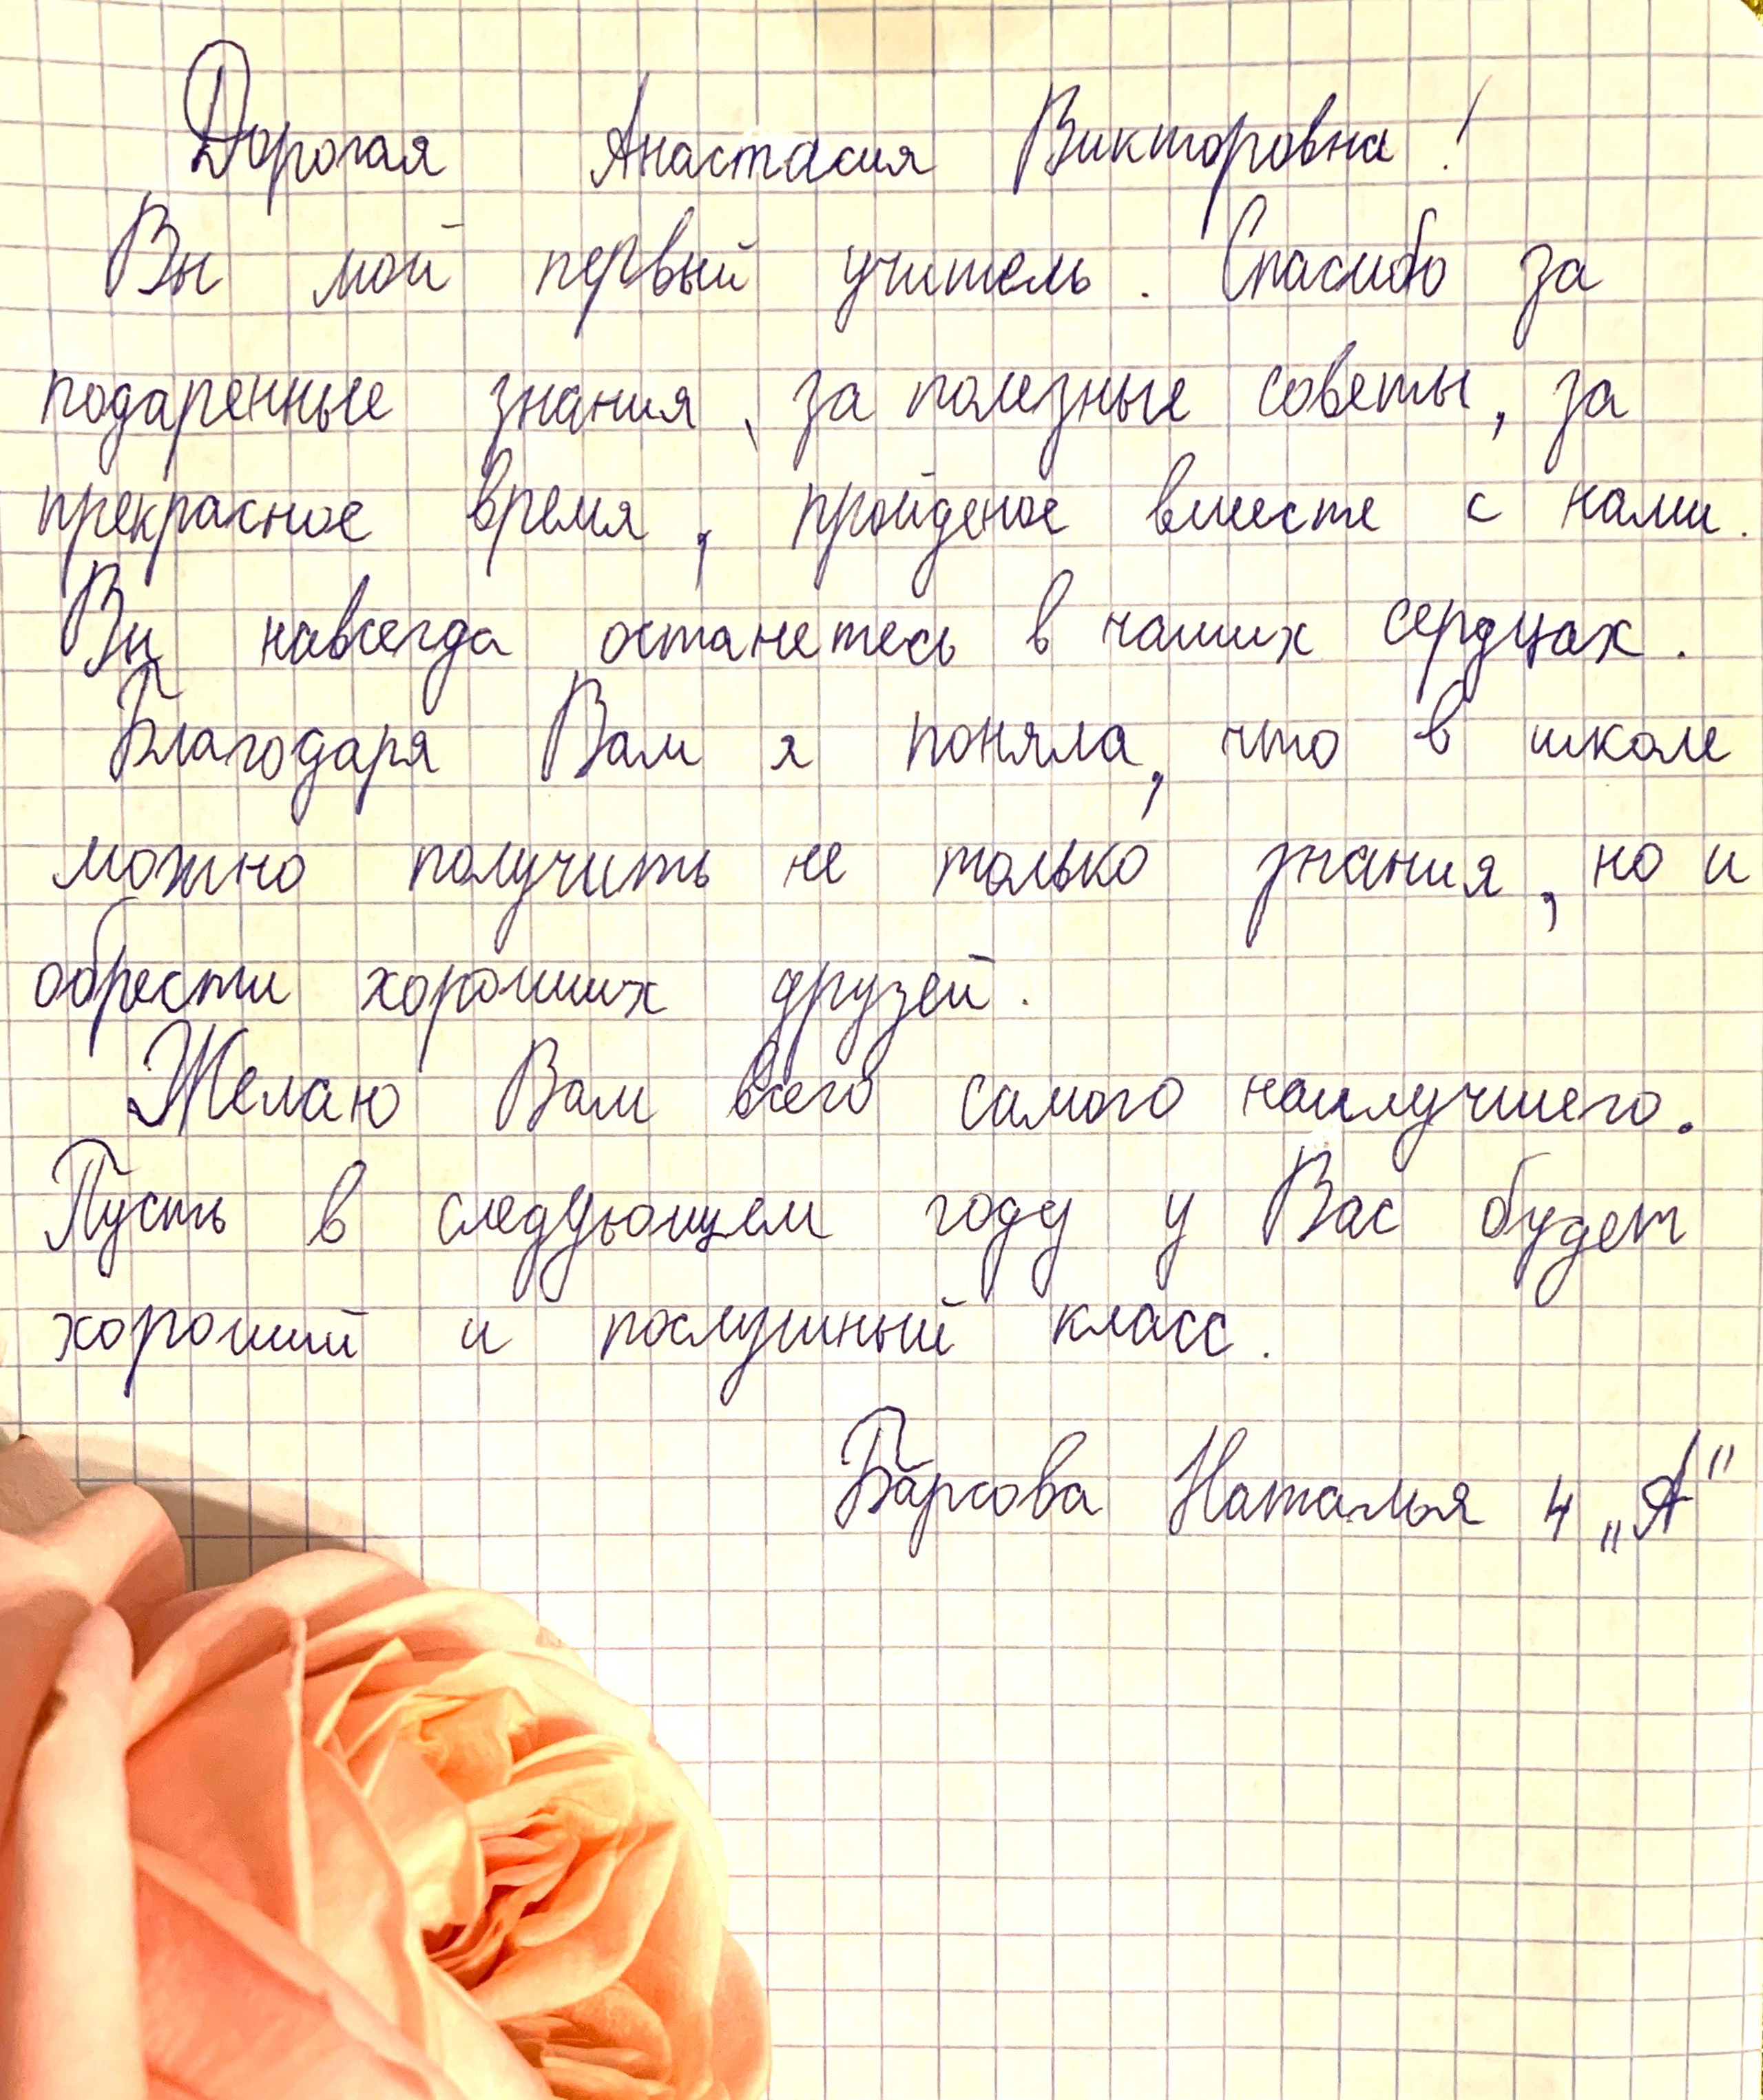 Дорогая Анастасия Викторовна!
Вы мой первый учитель. Спасибо за
подаренные знания, за полезные советы, за
прекрасное время, пройденое вместе с нами.
Вы навсегда останетесь в наших сердцах.
Благодаря Вам я поняла, что в школе
можно получить не только знания, но и
обрести хороших друзей.
Желаю Вам всего самого наилучшего.
Пусть в следующем году у Вас будет
хороший и послушный класс.
Барсова Наталья 4 „А"